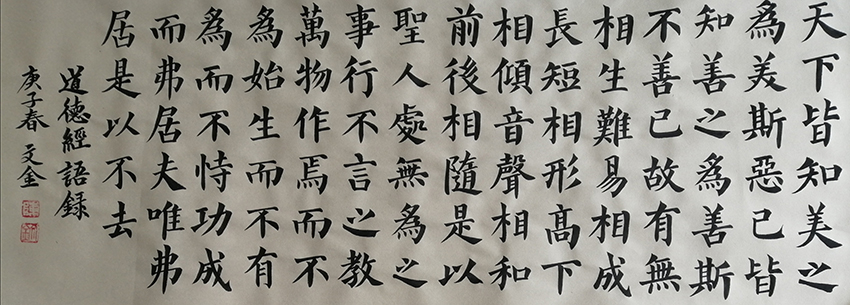 天下皆知美之
為美斯惡已皆
知善之為善斯
不善已故有無
相生難易相成
長短相形高下
相傾音聲相和
前後相隨是以
聖人處無為之
事行不言之教
萬物作焉而不
為始生而不有
為而不恃功成
而弗居夫唯弗
居是以不去
道德經語錄
庚子春 文金